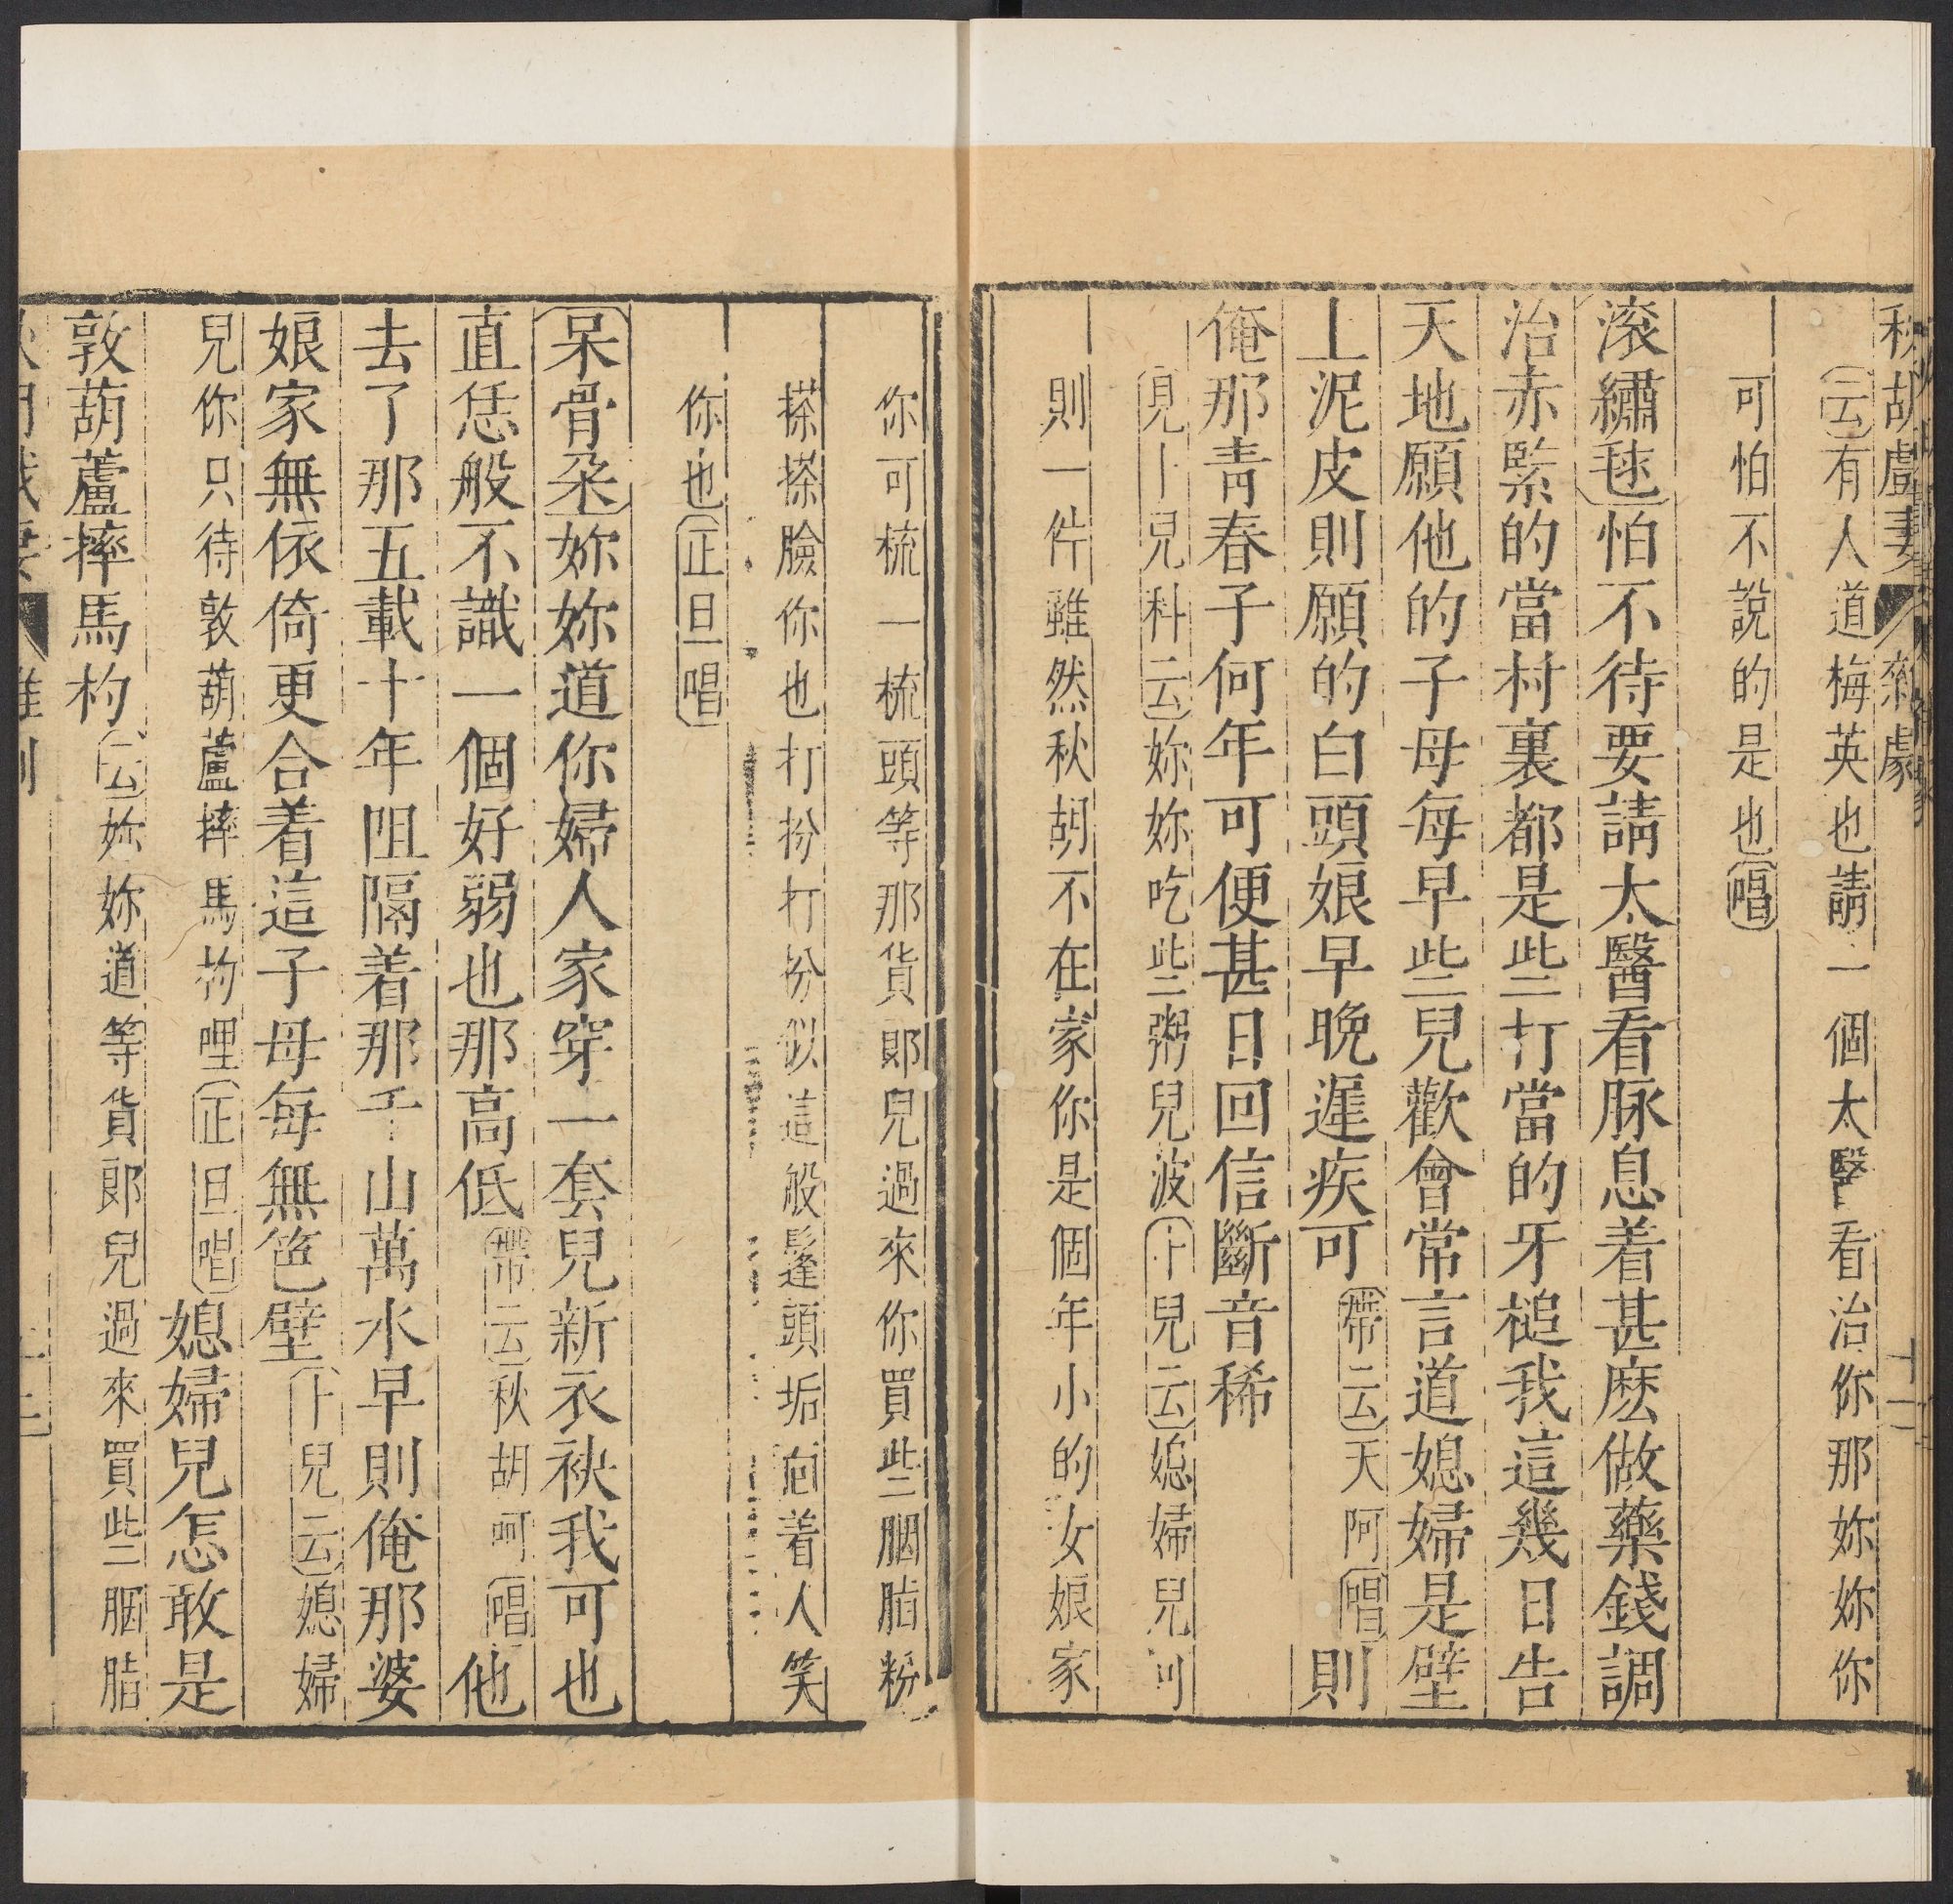 秋胡戲妻 雜劇 十二
云有人道梅英也請一個太醫看治你那妳妳你
可怕不說的是也唱
滾繡毬怕不待要請太醫看脉息着甚麽做藥錢調
治赤緊的當村裏都是些打當的牙槌我這幾日告
天地願他的子母每早些兒歡會常言道媳婦是壁
上泥皮則願的白頭娘早晚遲疾可帶云天阿唱則
俺那青春子何年可便甚日回信斷音稀
見卜兒科云妳妳吃些粥兒波卜兒云媳婦兒可
則一件雖然秋胡不在家你是個年小的女娘家
你可梳一梳頭等那貨郎兒過來你買些胭脂粉
搽搽臉你也打扮打扮似這般鬅頭垢面着人笑
你也正旦唱
呆骨朶妳妳道你婦人家穿一套兒新衣袂我可也
直恁般不識一個好弱也那高低帶云秋胡呵唱他
去了那五載十年阻隔着那千山萬水早則俺那婆
娘家無依倚更合着這子母每無笆壁卜兒云媳婦
兒你只待敦葫蘆摔馬杓哩正旦唱媳婦兒怎敢是
敦葫蘆摔馬杓云妳妳道等貨郎兒過來買些胭脂